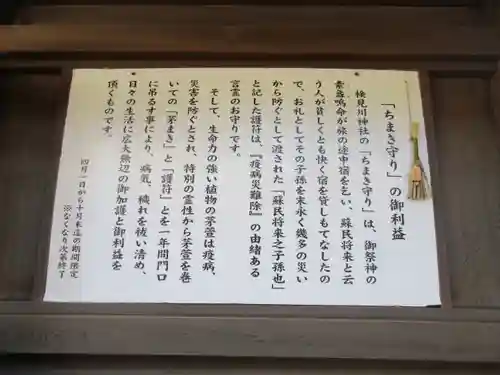 「ちまき守り」の御利益
検見川神社の「ちまき守り」は、御祭神の
素盞嗚命が旅の途中宿を乞い、蘇民将来と云
う人が貧しくとも快く宿を貸しもてなしたの
で、お礼としてその子孫を末永く幾多の災い
から防ぐとして渡された「蘇民将来之子孫也」
と記した護符は、『疫病災難除』の由緒ある
言霊のお守りです。
そして、生命力の強い植物の茅萱は疫病、
災害を防ぐとされ、特別の霊性から茅萱を巻
いての「茅まき」と『護符』とを一年間門口
に吊るす事により、病気、穢れを祓い清め、
日々の生活に広大無辺の御加護と御利益を
頂くものです。
四月一日から十月末迄の期間限定
※なくなり次第終了